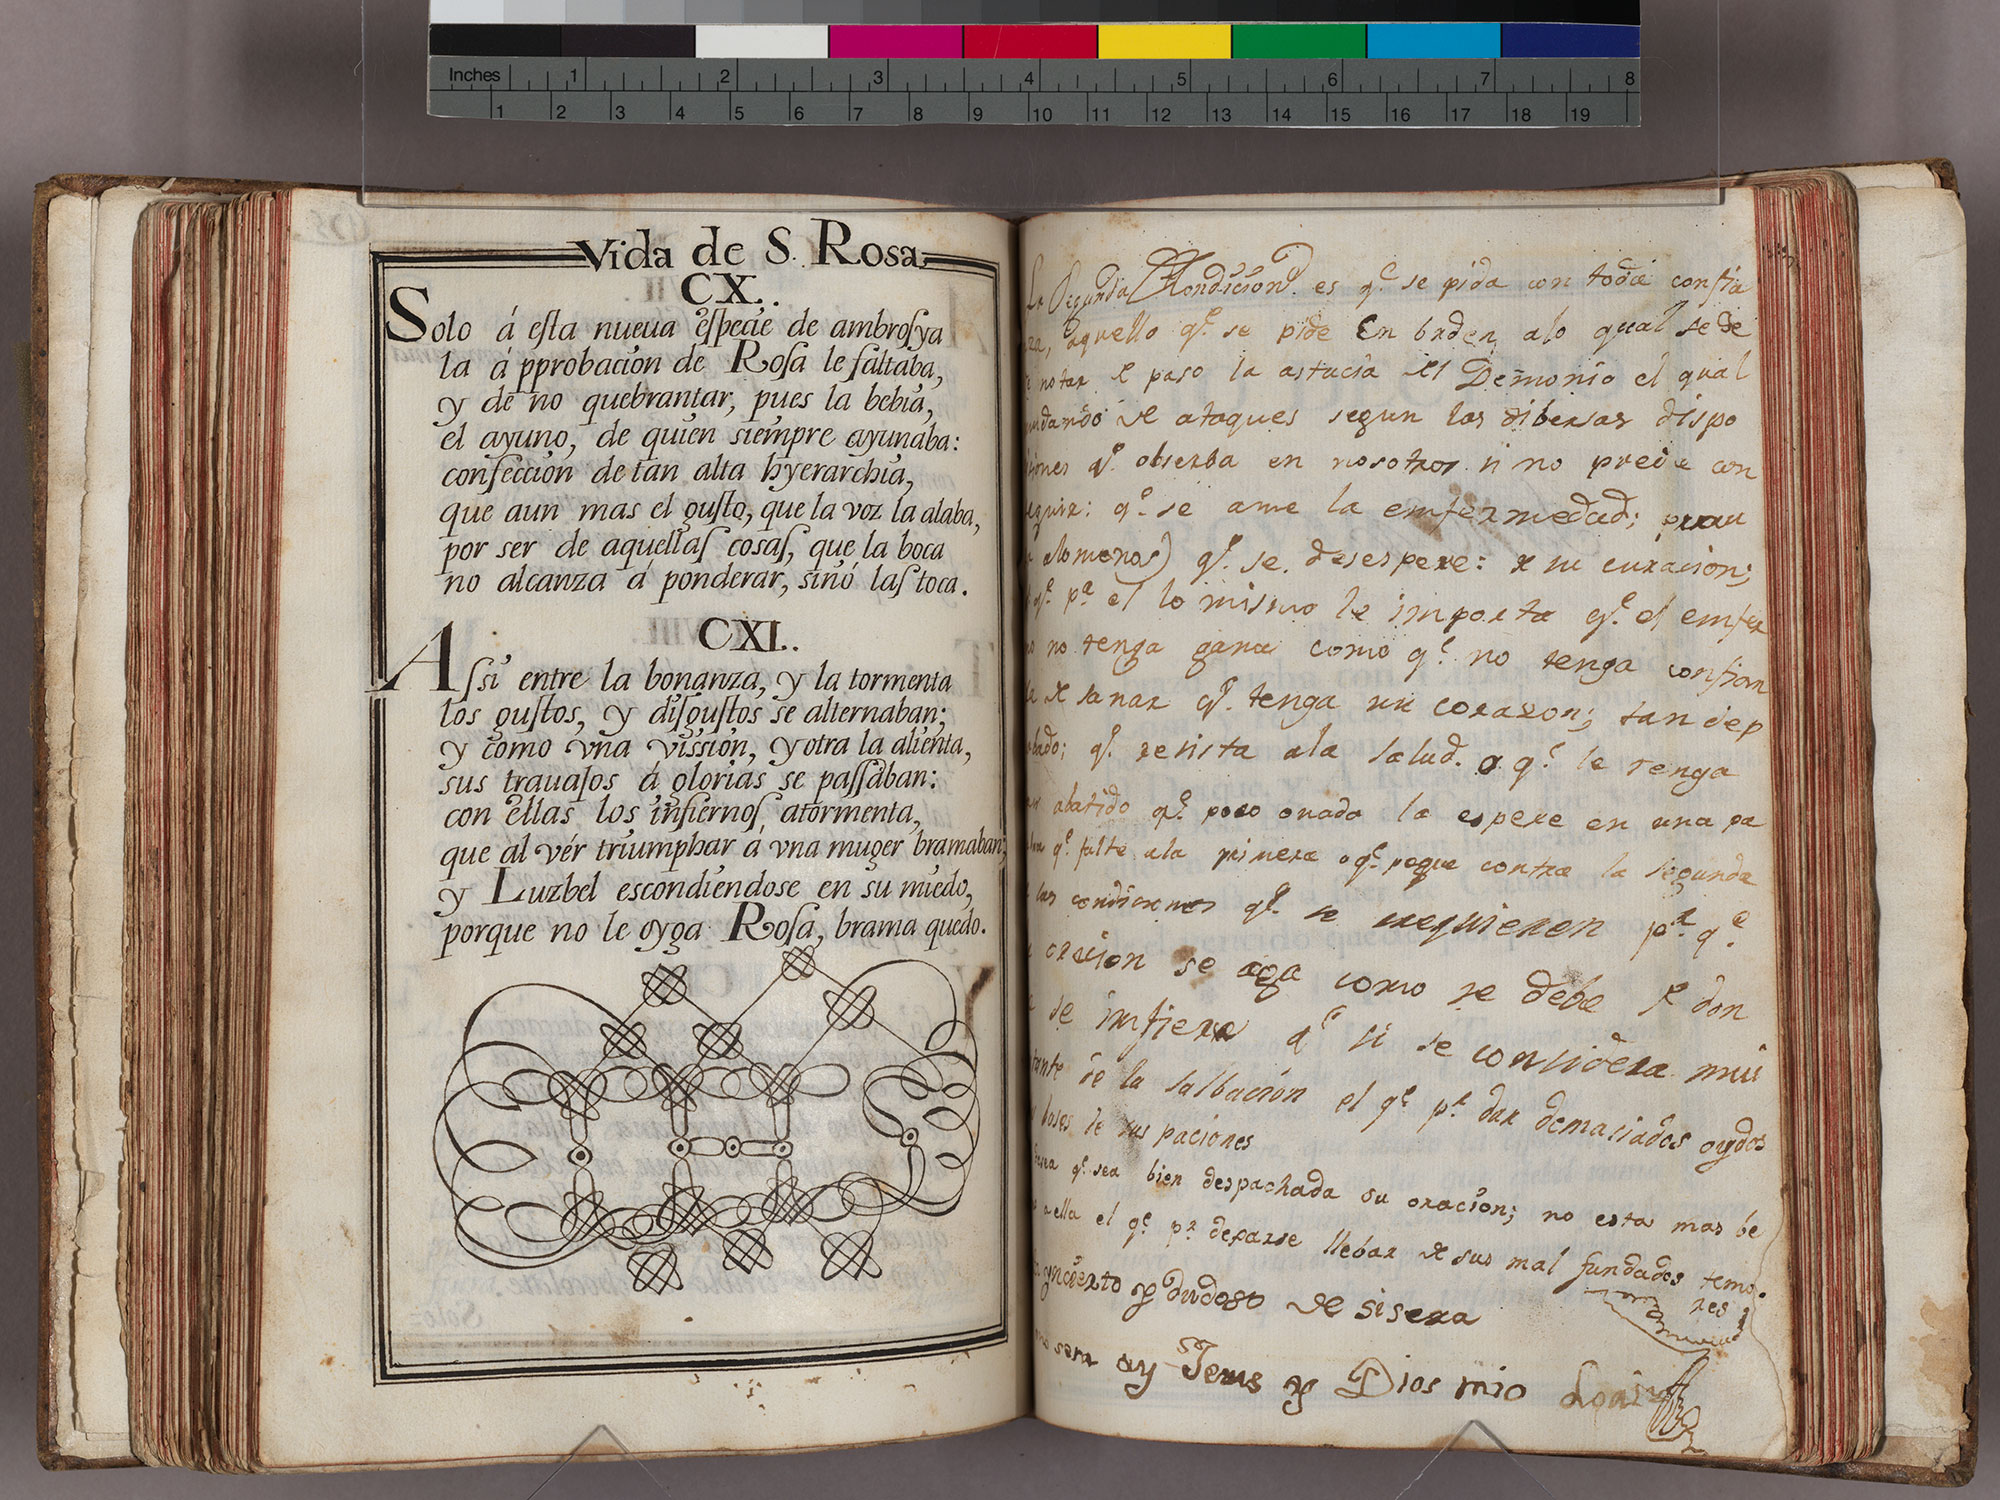 Inches 1 2 3 4 5 6 7 8
1 2 3 4 5 6 7 8 9 10 11 12 13 14 15 16 17 18 19
Vida de S. Rosa
CX.
Solo á esta nueua espeçie de ambrosya
la á pprobacion de Rosa le faltaba,
y de no quebrantar, pues la bebia,
el ayuno, de quien siempre ayunaba:
confeccion de tan alta hyerarchia,
que aun mas el gusto, que la voz la alaba,
por ser de aquellas cosas, que la boca
no alcanza á ponderar, sinó las toca.
CXI.
Assi entre la bonanza, y la tormenta
los gustos, y disgustos se alternaban;
y como vna vission, y otra la alienta,
sus trauajos á glorias se passaban:
con ellas los infiernos atormenta,
que al vér triumphar á vna muger bramaban;
y Luzbel escondiendose en su miedo,
porque no le oyga Rosa, brama quedo.
La Segunda Condicion es q.e se pida con toda confia
za, aquello q.e se pide En orden alo qual se de
notar de paso la astucia del Demonio el qual
mudando de ataques segun las dibersas dispo
siciones q.e obserba en nosotros si no puede con
seguir: q.e se ame la enfermedad;
alomenos) q.e se desespere: de su curacion;
q.e p.a el lo mismo le importa q.e el enfer
mo no tenga gana como q.e no tenga confian
za de sanar q.e tenga un corazon; tan dep
q.e resista ala salud. o q.e le tenga
tan abatido q.e poco onada la espere en una pa
labra q.e falte ala primera o q.e peque contra la segunda
de las condiciones q.e se requieren p.a q.e
la oracion se aga como se debe de don
de se infiere q.e si se considera mui
distante de la salbacion el q.e p.r dar demaciados oydos
a las boses de sus paciones
desea q.e sea bien despachada su oracion; no esta mas
de ella el q.e p.r dejarse llebar de sus mal fundados temo.
res
yncierto y dudoso de si sera
no sera ay Jesus y Dios mio